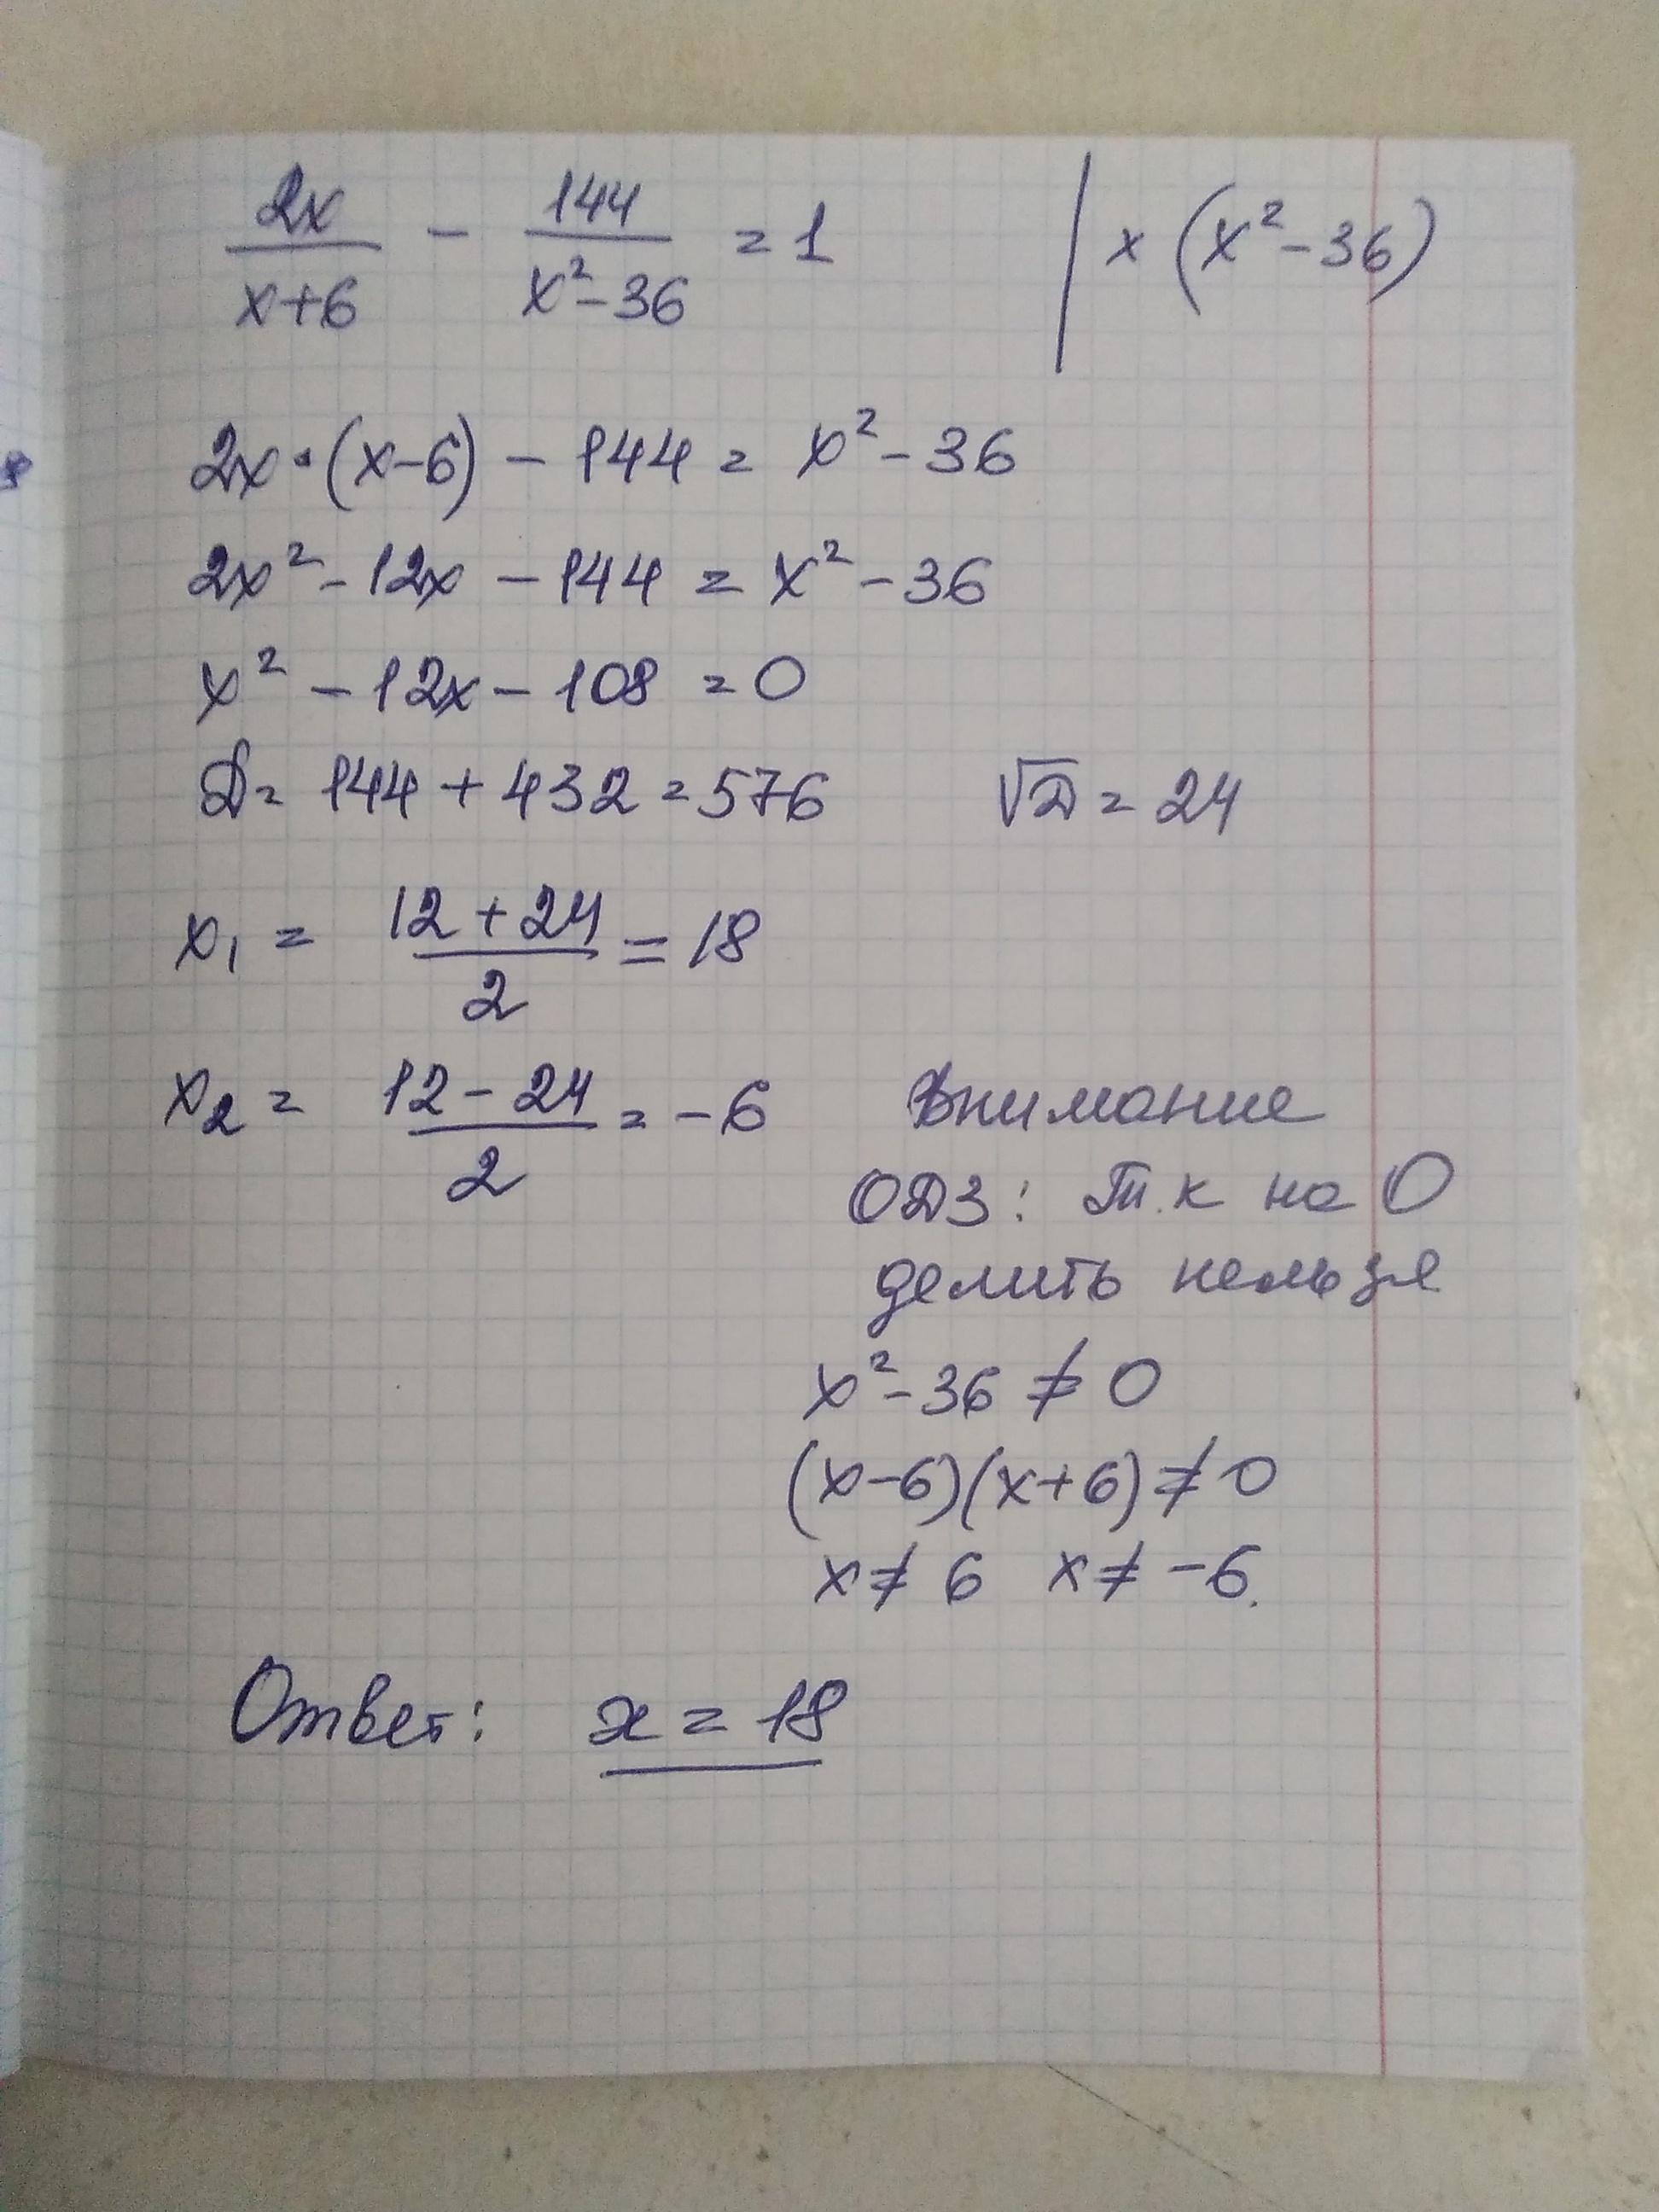 2x/(x+6) - 144/(x²-36) = 1 | × (x²-36)
2x·(x-6) - 144 = x²-36
2x²-12x-144 = x²-36
x²-12x-108 = 0
D = 144+432 = 576 √D = 24
x₁ = (12+24)/2 = 18
x₂ = (12-24)/2 = -6 Внимание
ОДЗ: Т.к на 0
делить нельзя
x²-36 ≠ 0
(x-6)(x+6) ≠ 0
x ≠ 6 x ≠ -6.
Ответ: x = 18